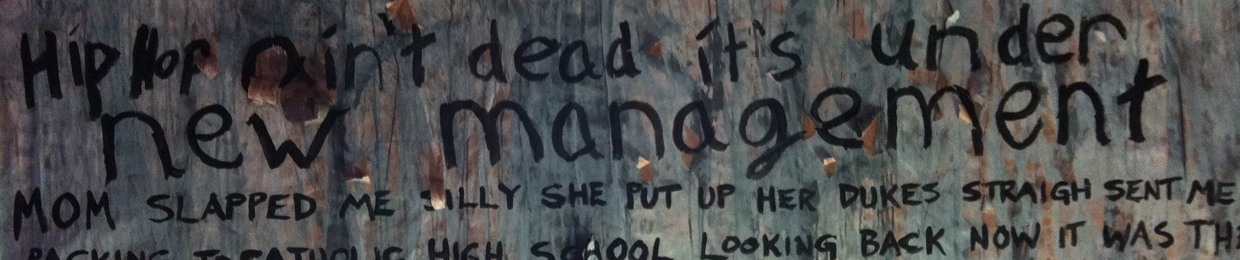 Hip Hop ain't dead it's under
new management
MOM SLAPPED ME SILLY SHE PUT UP HER DUKES STRAIGH SENT ME
PACKING TO CATHOLIC HIGH SCHOOL LOOKING BACK NOW IT WAS THE